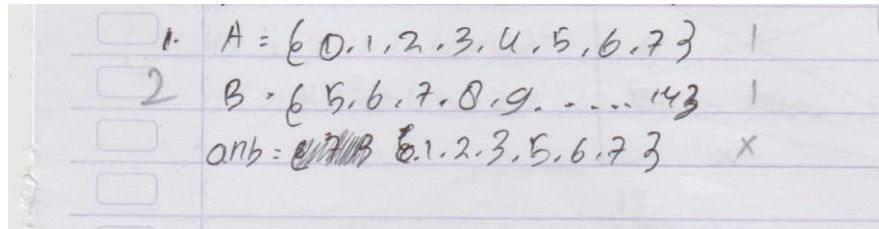 1. A = { 0, 1, 2, 3, 4, 5, 6, 7 } 1
2 B = { 5, 6, 7, 8, 9, ..... 14 } 1
anb = { 1, 2, 3, 5, 6, 7 } x